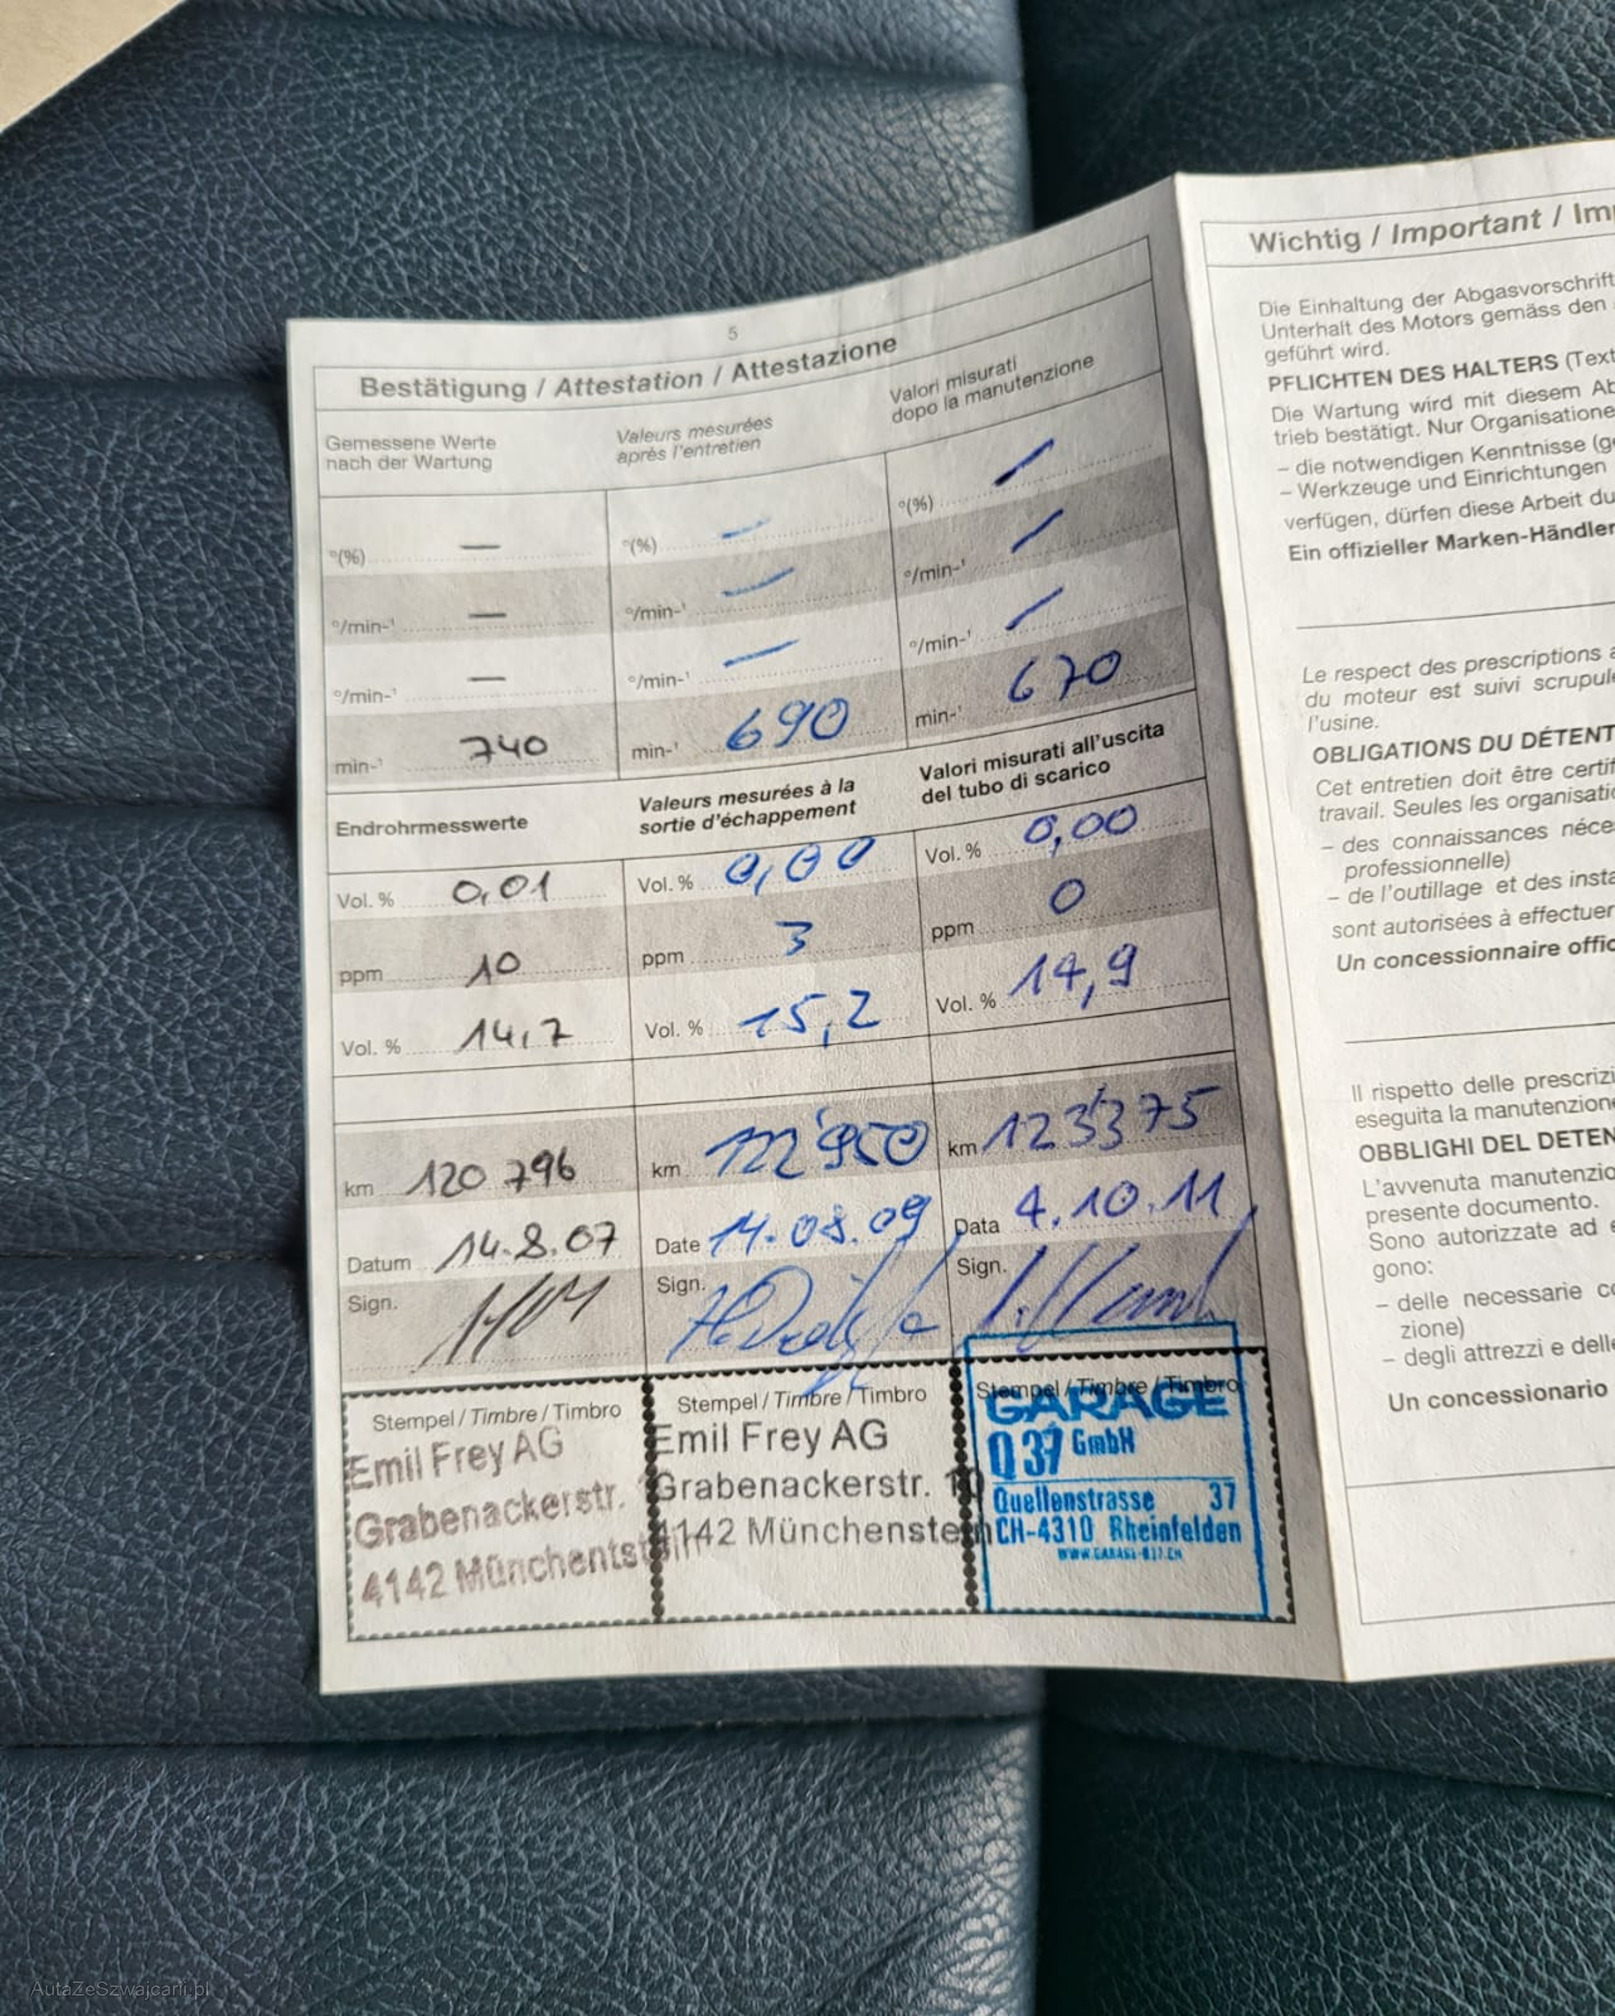 5
Bestätigung / Attestation / Attestazione
Gemessene Werte
nach der Wartung
Valeurs mesurées
après l'entretien
Valori misurati
dopo la manutenzione
°(%) —
°(%) —
°(%) —
°/min-¹ —
°/min-¹ —
°/min-¹ —
°/min-¹ —
°/min-¹ —
°/min-¹ —
min-¹ 740
min-¹ 690
min-¹ 670
Endrohrmesswerte
Valeurs mesurées à la
sortie d'échappement
Valori misurati all'uscita
del tubo di scarico
Vol. % 0,01
Vol. % 0,00
Vol. % 0,00
ppm 10
ppm 3
ppm 0
Vol. % 14,7
Vol. % 15,2
Vol. % 14,9
km 120 796
km 122'950
km 123'375
Datum 14.8.07
Date 14.08.09
Data 4.10.11
Sign.
Sign.
Sign.
Stempel / Timbre / Timbro
Emil Frey AG
Grabenackerstr.
4142 Münchentstein
Stempel / Timbre / Timbro
Emil Frey AG
Grabenackerstr. 10
4142 Münchenstein
Stempel / Timbre / Timbro
GARAGE
Q37 GmbH
Quellenstrasse 37
CH-4310 Rheinfelden
WWW.GARAGE-Q37.CH
Wichtig / Important /
Die Einhaltung der Abgasvorschrift
Unterhalt des Motors gemäss den
geführt wird.
PFLICHTEN DES HALTERS (Text
Die Wartung wird mit diesem Ab
trieb bestätigt. Nur Organisatione
– die notwendigen Kenntnisse (g
– Werkzeuge und Einrichtungen
verfügen, dürfen diese Arbeit du
Ein offizieller Marken-Händler
Le respect des prescriptions a
du moteur est suivi scrupule
l'usine.
OBLIGATIONS DU DÉTENT
Cet entretien doit être certif
travail. Seules les organisatio
– des connaissances néce
professionnelle)
– de l'outillage et des insta
sont autorisées à effectuer
Un concessionnaire offic
Il rispetto delle prescrizi
eseguita la manutenzione
OBBLIGHI DEL DETEN
L'avvenuta manutenzio
presente documento.
Sono autorizzate ad e
gono:
– delle necessarie co
zione)
– degli attrezzi e delle
Un concessionario
AutaZeSzwajcarii.pl